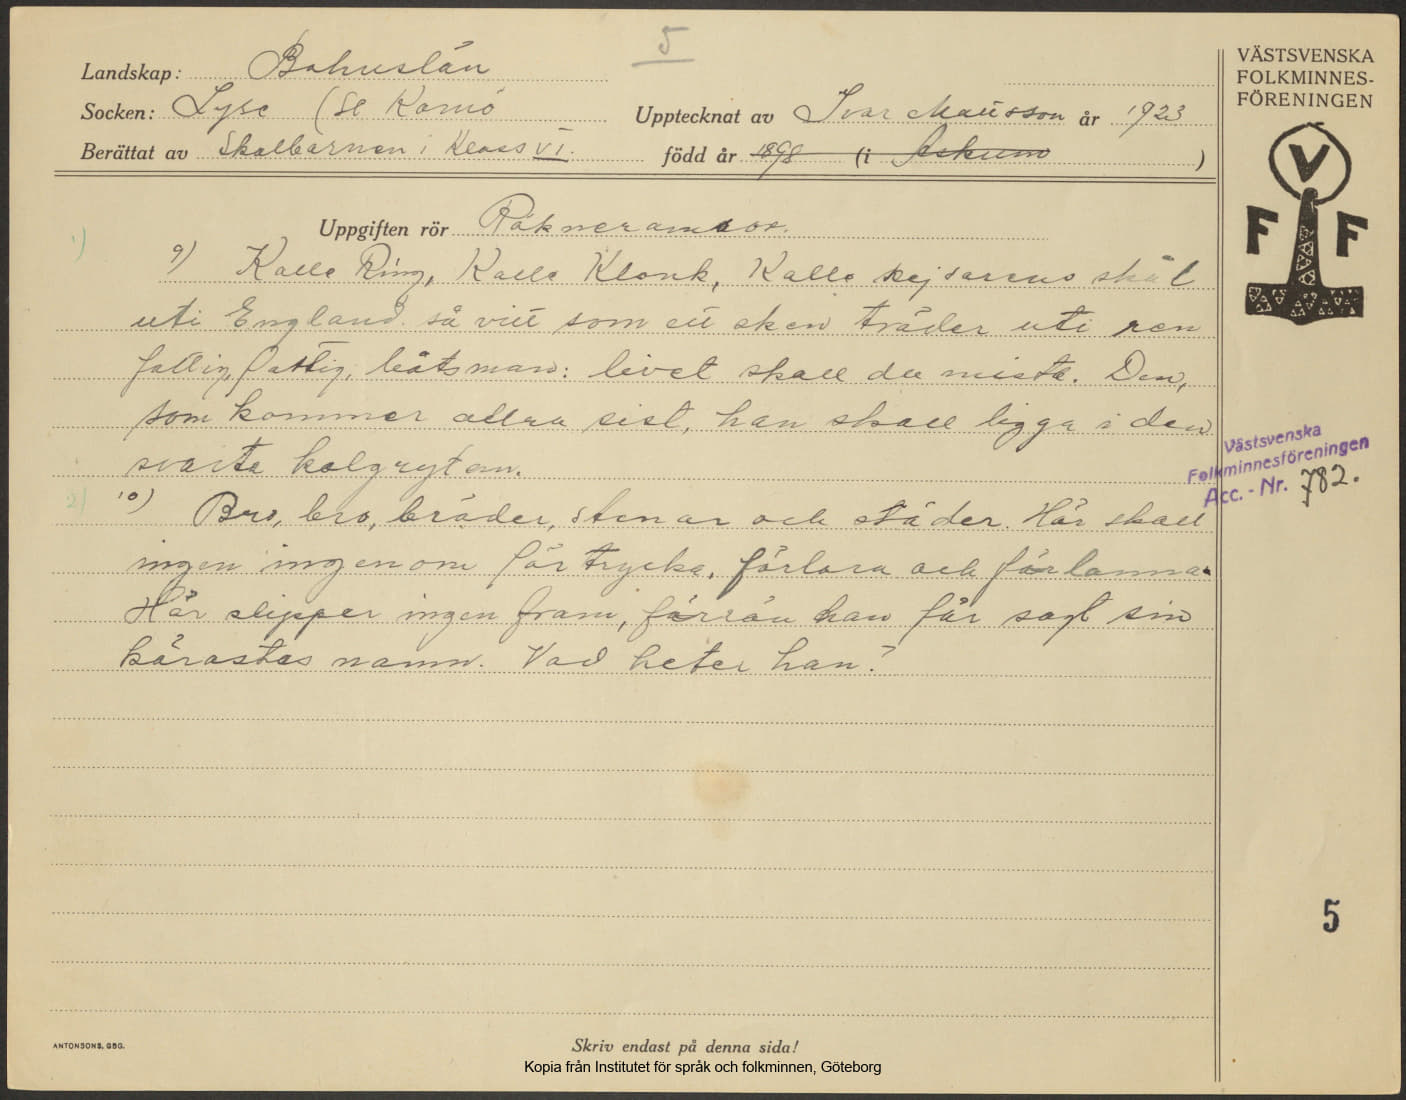 5
Landskap: Bohuslän
Socken: Lyse (St Kornö
Upptecknat av Ivar Mattsson år 1923
Berättat av Skolbarnen i Klass VI.
född år 1898 (i Askum )
Uppgiften rör Räkneramsor.
1)
9) Kalle Ring, Kalle Klonk, Kalle kejsarens skål
uti England så vitt som ett sken träder uti ren
fattig, fattig, båtsman: livet skall du mista. Den,
som kommer allra sist, han skall ligga i den
svarta kolgrytan.
2)
10) Bro, bro, bräder, stenar och städer. Här skall
ingen ingenom förtrycka, förlora och förlamna.
Här slipper ingen fram, förrän han får sagt sin
kärastes namn. Vad heter han?
VÄSTSVENSKA
FOLKMINNES-
FÖRENINGEN
V
F F
Västsvenska
Folkminnesföreningen
Acc.-Nr. 782.
5
ANTONSONS, GBG.
Skriv endast på denna sida!
Kopia från Institutet för språk och folkminnen, Göteborg